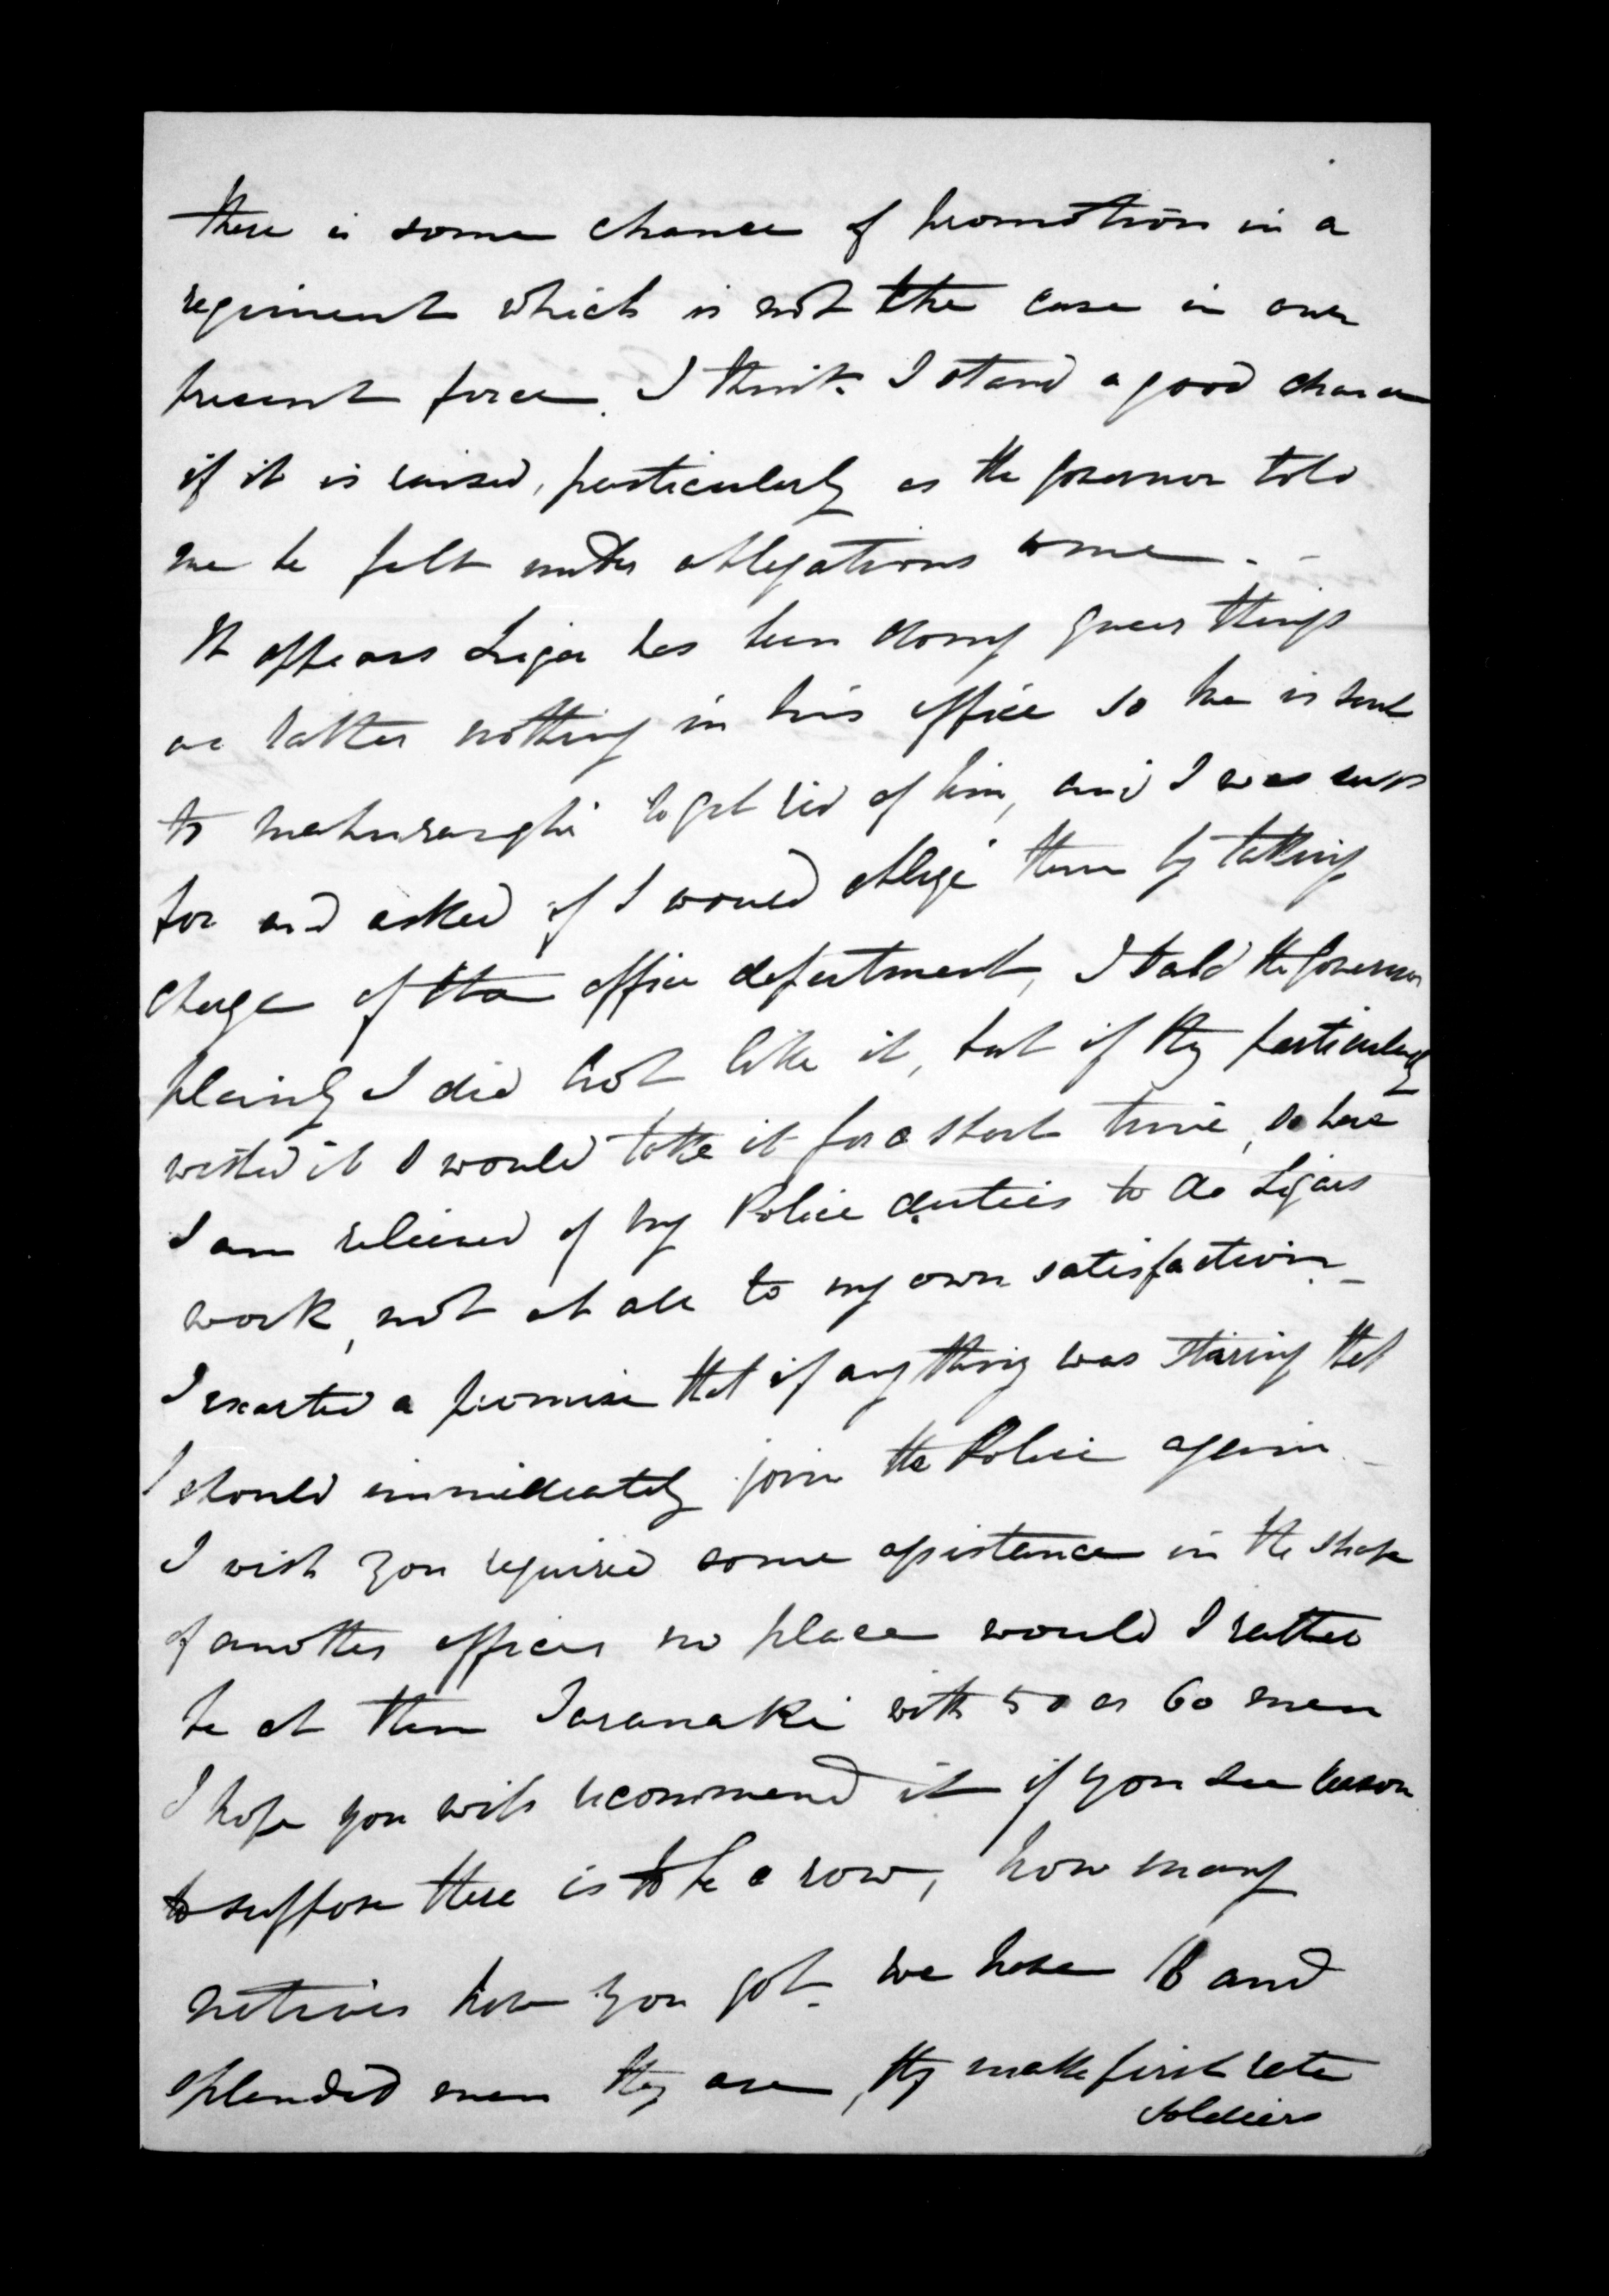 there is some chance of promotion in a
regiment which is not the case in our
present force. I think I stand a good chance
if it is raised, particularly as the Governor told
me he felt under obligations to me. -
It appears Ligar has been doing queer things
or rather nothing in his office so he is sent
to Mahuranghi to get rid of him, and I was sent
for and asked if I would oblige them by taking
charge of the office department, I told the Governor
plainly I did not like it, but if they particularly
wished it I would take it for a short time, so here
I am relieved of my Police duties to do Ligars
work, not at all to my own satisfaction_
I exacted a promise that if any thing was stiring that
I should immediately join the Police again_
I wish you required some assistance in the shape
of another officer no place would I rather
be at than Taranaki with 50 or 60 men
I hope you will recommend it if you see reason
to suppose there is to be a row, how many
natives have you got. we have and
splendid men they are, they make first rate
soldiers